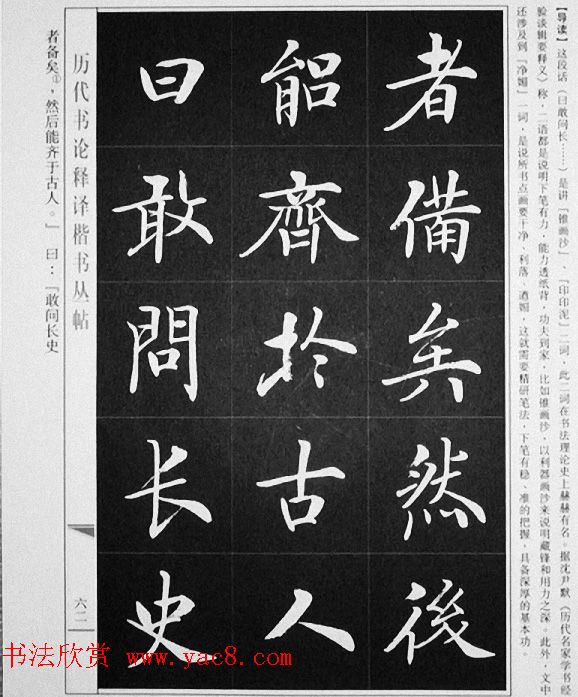 【导读】这段话（曰敢问长……）是讲『锥画沙』、『印印泥』二词，此二词在书法理论史上赫赫有名。据沈尹默《历代名家学书经
验谈辑要释义》称，二语都是说明下笔有力，能力透纸背，功夫到家，比如锥画沙，以利器画沙来说明藏锋和用力之深。此外，文中
还涉及到『净媚』一词，是说所书点画要干净、利落、遒媚，这就需要精研笔法，下笔有稳、准的把握，具备深厚的基本功。
者備矣然後
能齊於古人
曰敢問长史
历代书论释译楷书丛帖
六二
者备矣①，然后能齐于古人。』曰：『敢问长史
书法欣赏 www.yac8.com